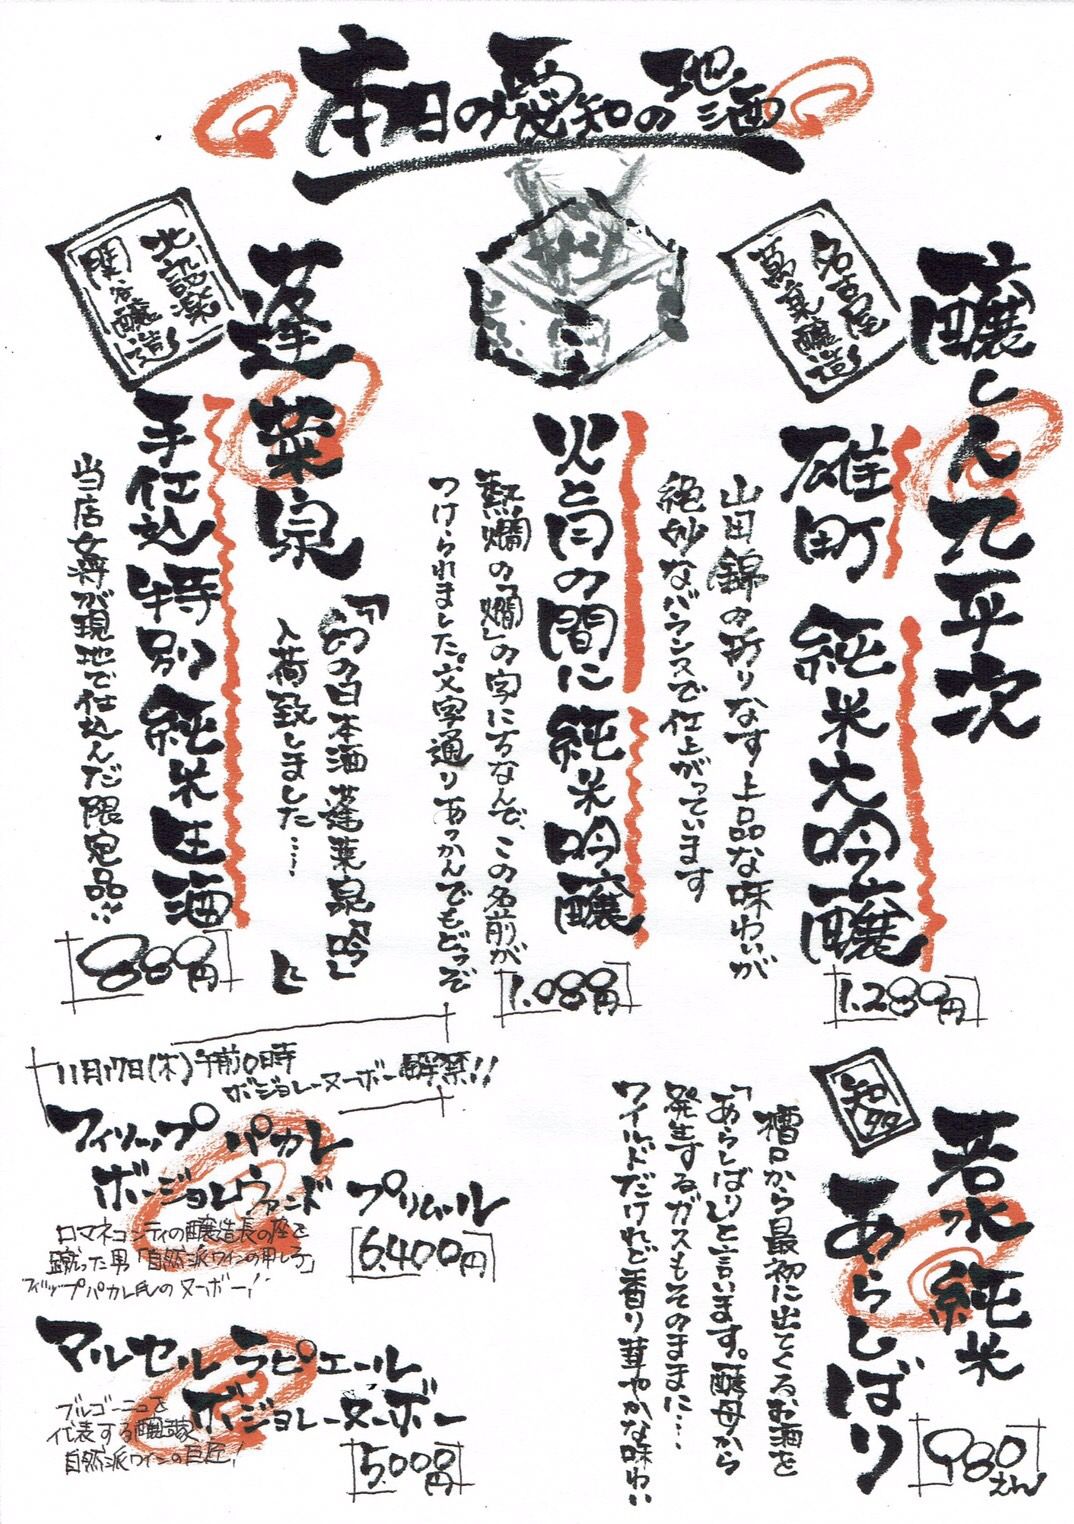 本日の愛知の地酒
醸し人九平次
名古屋
萬乗醸造
雄町 純米大吟醸
山田錦の折りなす上品な味わいが
絶妙なバランスで仕上がっています
1.280円
火と月の間に 純米吟醸
熱燗の「燗」の字にちなんで、この名前が
つけられました。文字通りあつかんでもどうぞ
1.080円
蓬莱泉
北設楽
関谷醸造
手仕込 特別純米生酒
『幻の日本酒蓬莱泉「吟」
入荷致しました…
当店女将が現地で仕込んだ限定品!!
880円
若水純米
あらしばり
知多
槽口から最初に出てくるお酒を
「あらしばり」と言います。酵母から
発生するガスもそのままに…
ワイルドだけれど香り華やかな味わい
980えん
11月17日(木)午前0時
ボジョレーヌーボー解禁!!
フィリップ パカレ
ボージョレ ヴァンド プリムール
ロマネコンティの醸造長の座を
蹴った男「自然派ワインの申し子」
フィリップパカレ氏のヌーボー!
6.400円
マルセル ラピエール
ボジョレーヌーボー
ブルゴーニュを
代表する醸造家
自然派ワインの巨匠!
5.000円